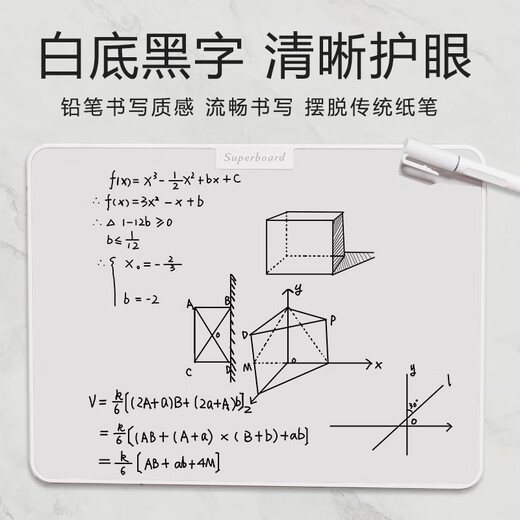 白底黑字 清晰护眼
铅笔书写质感 流畅书写 摆脱传统纸笔
Superboard
f(x)=x³-½x²+bx+c
∴f(x)=3x²-x+b
∴△ 1-12b≥0
b≤1/12
∴{ x₀=-2/3
b=-2
A B
O
C D
y
D P
M O x
z
y l
30°
O
V=k/6[(2A+a)B+(2a+A)b]
=k/6[(AB+(A+a)×(B+b)+ab]
=k/6[AB+ab+4M]